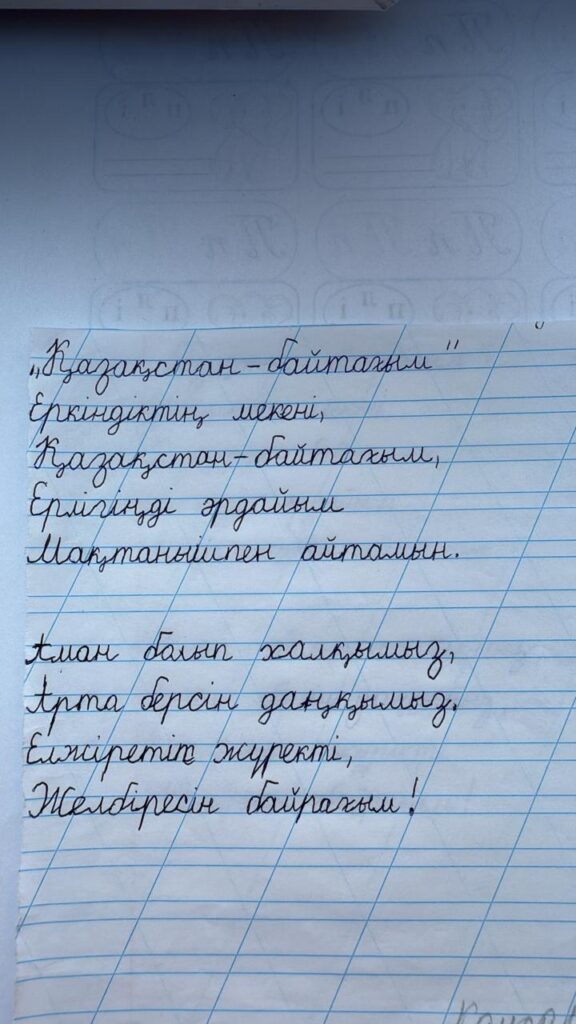 „Қазақстан - байтағым"
Еркіндіктің мекені,
Қазақстан - байтағым,
Ерлігіңді әрдайым
Мақтанышпен айтамын.
Аман болып халқымыз,
Арта берсін даңқымыз.
Елжіретіп жүректі,
Желбіресін байрағым!